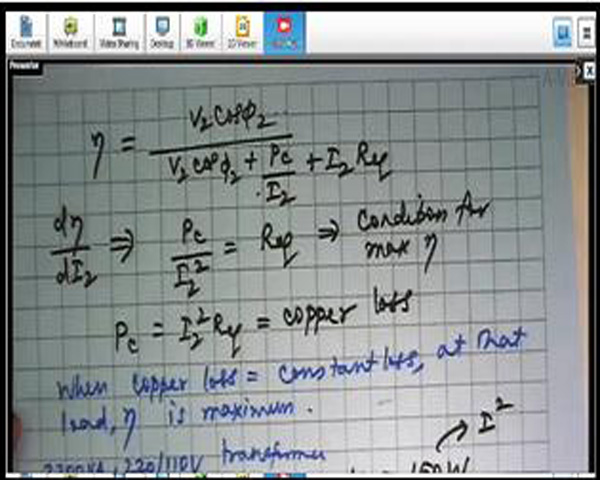 Document Whiteboard Video Sharing Desktop 3D Viewer 2D Viewer
Presenter
η = V₂ cosφ₂ / (V₂ cosφ₂ + Pc/I₂ + I₂ Req)
dη/dI₂ ⇒ Pc/I₂² = Req ⇒ Condition for
max η
Pc = I₂² Req = copper loss
When copper loss = constant loss, at that
load, η is maximum.
→ I²
2200VA, 220/110V transformer
150W